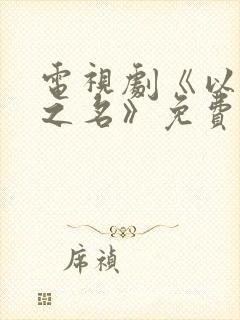 電視劇《以
之名》免費
席禎